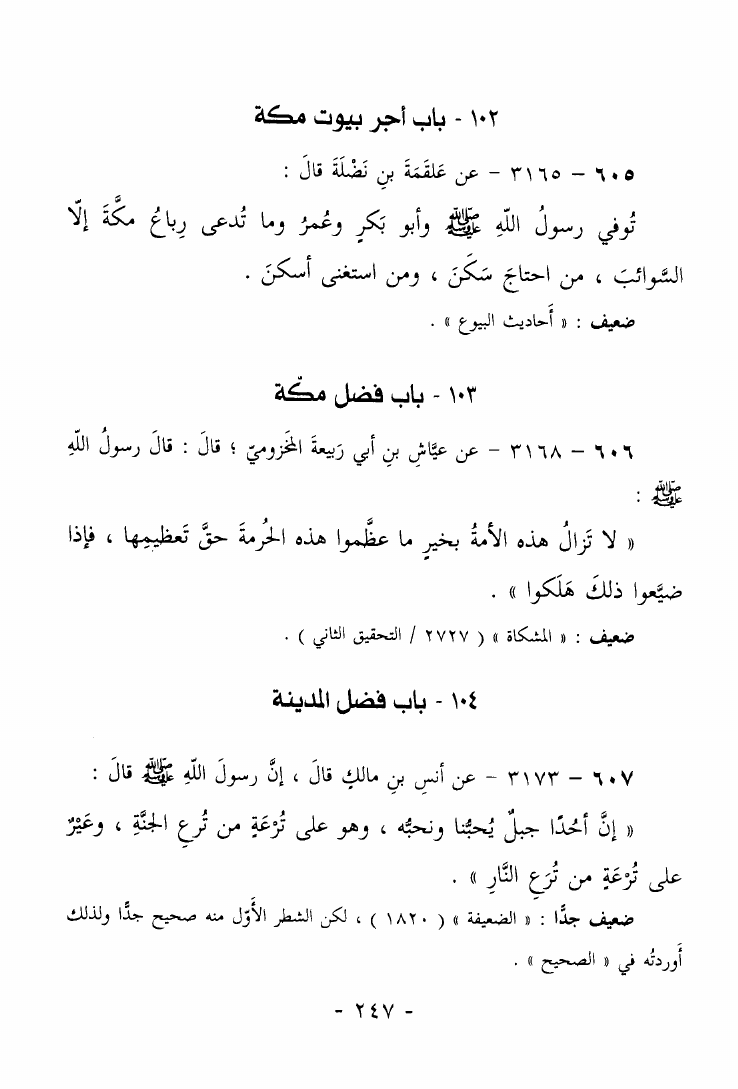 ١٠٢ - باب أجر بيوت مكة
٦٠٥ – ٣١٦٥ – عن عَلقَمَةَ بنِ نَضْلَةَ قالَ :
تُوفي رسولُ اللّهِ ﷺ وأبو بَكرٍ وعُمرُ وما تُدعى رِباعُ مكَّةَ إلّا
السَّوائبَ ، من احتاجَ سَكَنَ ، ومن استغنى أسكنَ .
ضعيف : « أَحاديث البيوع » .
١٠٣ - باب فضل مكّة
٦٠٦ – ٣١٦٨ – عن عيَّاشِ بنِ أبي رَبيعةَ المَخزوميّ ؛ قالَ : قالَ رسولُ اللّهِ
ﷺ :
« لا تَزالُ هذه الأمةُ بخيرٍ ما عظَّموا هذه الحُرمةَ حقَّ تَعظيمِها ، فإذا
ضيَّعوا ذلكَ هَلَكوا » .
ضعيف : « المشكاة » ( ٢٧٢٧ / التحقيق الثاني ) .
١٠٤ - باب فضل المدينة
٦٠٧ – ٣١٧٣ – عن أنسِ بنِ مالكٍ قالَ ، إنَّ رسولَ اللّهِ ﷺ قالَ :
« إنَّ أحُدًا جبلٌ يُحبُّنا ونحبُّه ، وهو على تُرْعَةٍ من تُرعِ الجنَّةِ ، وعَيْرٌ
على تُرْعَةٍ من تُرَعِ النَّارِ » .
ضعيف جدًّا : « الضعيفة » ( ١٨٢٠ ) ، لكن الشطر الأوّل منه صحيح جدًّا ولذلك
أَوردتُه في « الصحيح » .
- ٢٤٧ -